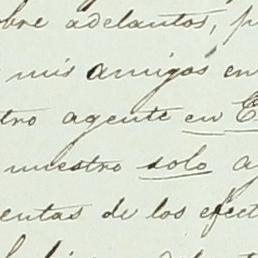 obre adelantos, p
mis amigos en
tro agente en E
nuestro solo a
entas de los efect